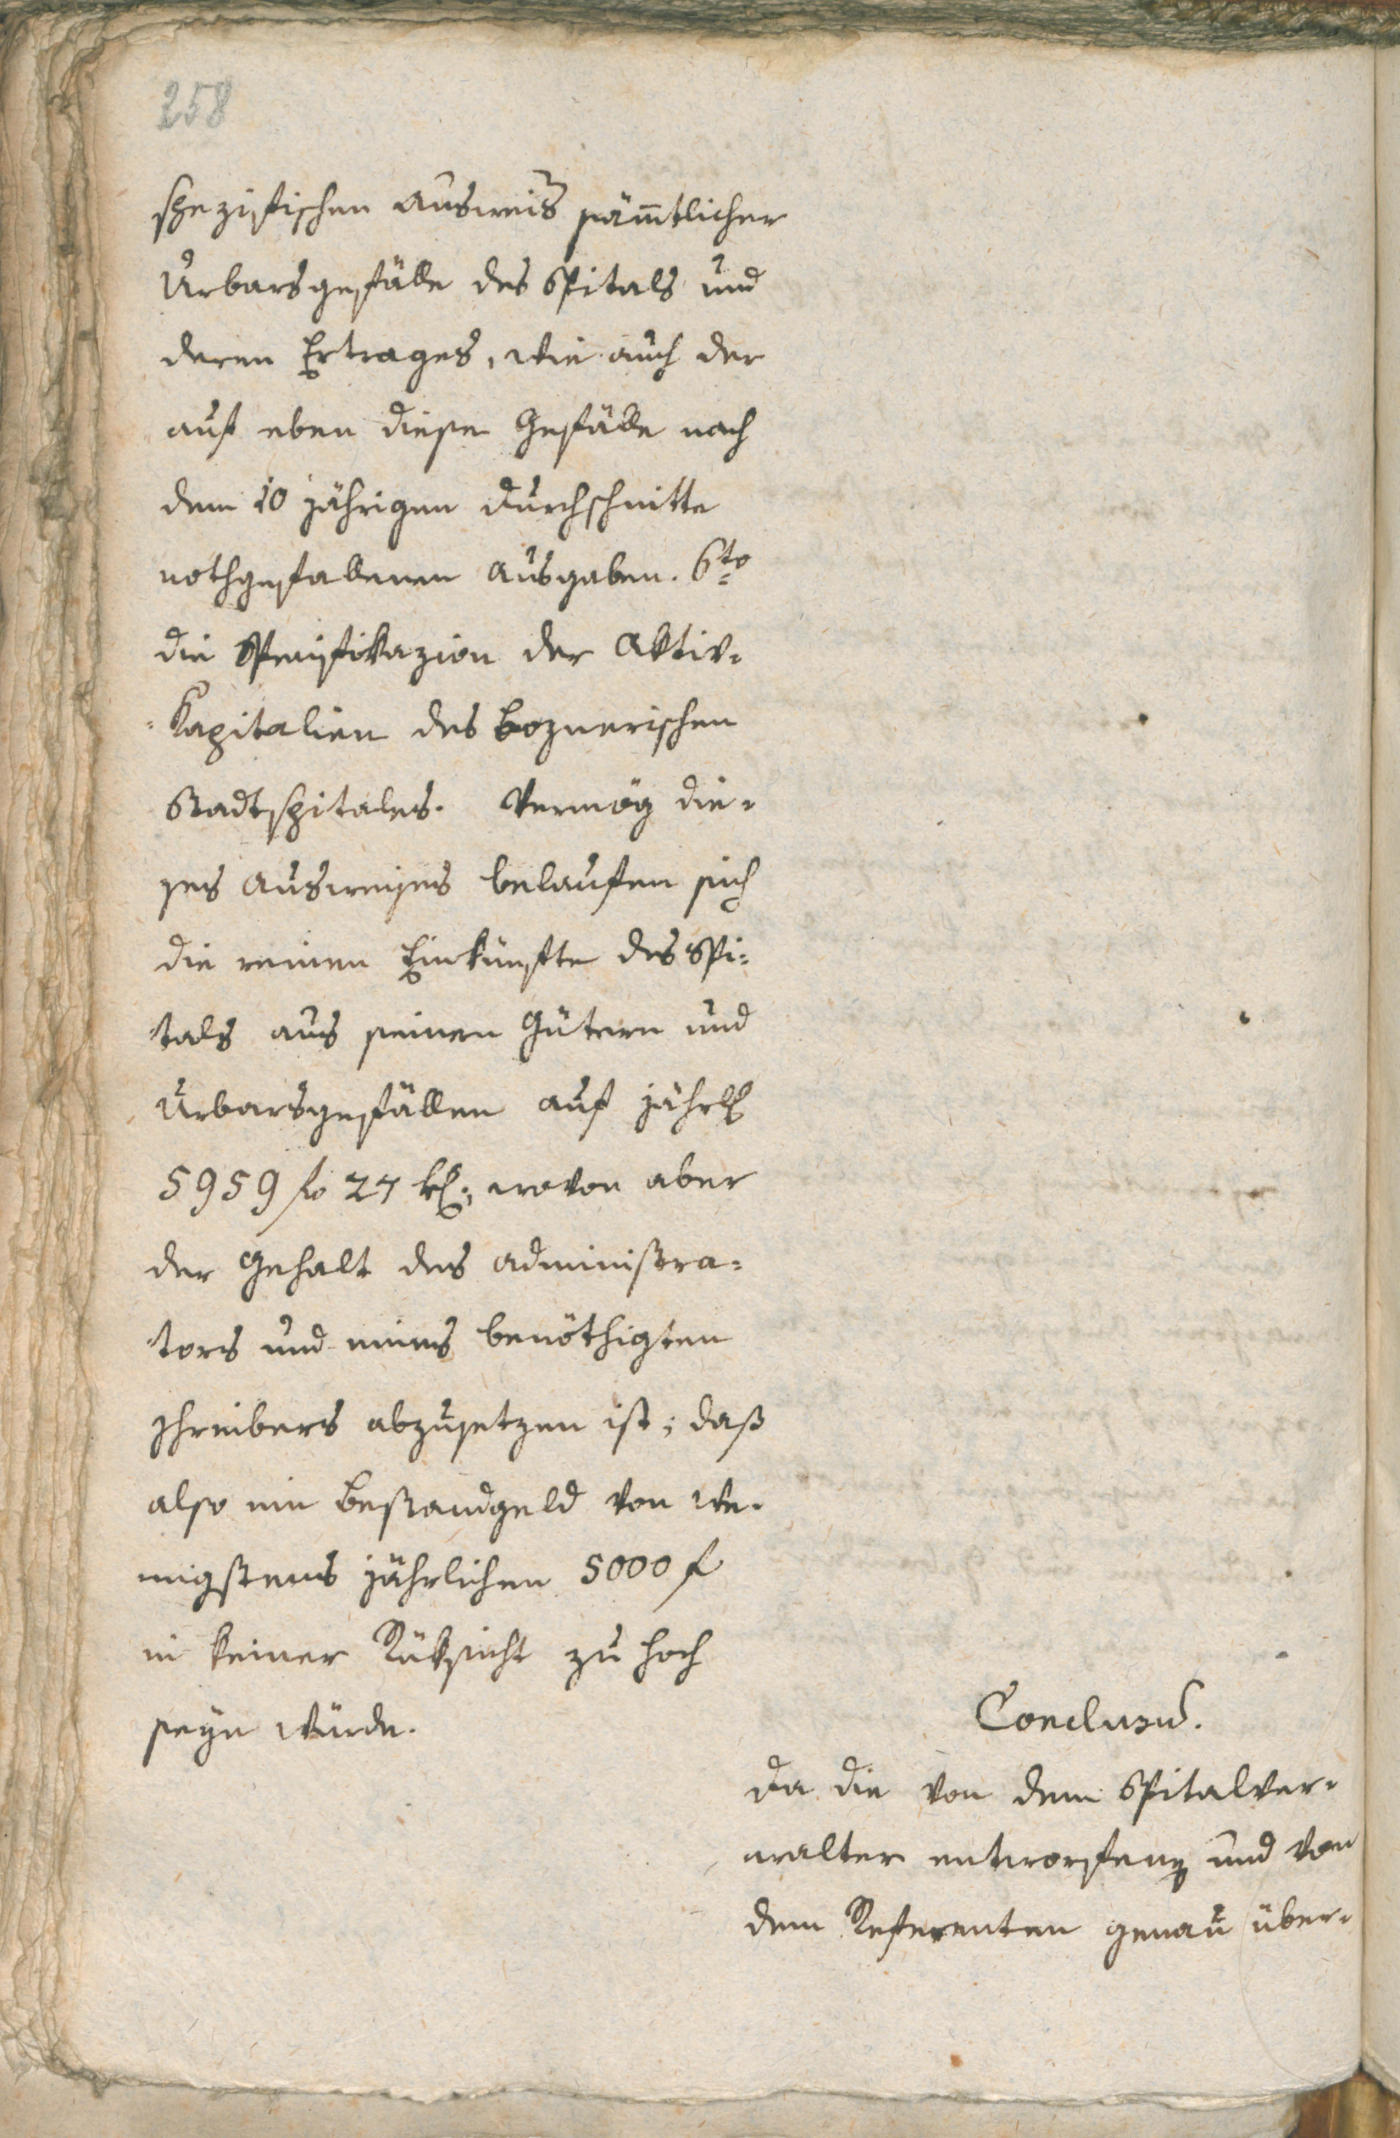 258
spezifischen Ausweis sämtlicher
Urbarsgefälle des Spitals und
deren Ertrages, wie auch der
auf eben diese Gefälle nach
dem 10 jährigen Durchschnitte
nothgefallenen Ausgaben. 6to
die Spezifikazion der Aktiv-
Kapitalien des Boznerischen
Stadtspitales. Vermög die-
ses Ausweises belaufen sich
die reinen Einkünfte des Spi-
tals aus seinen Gütern und
Urbarsgefällen auf jährlich
5959 fl 27 kr; wovon aber
der Gehalt des Administra-
tors und eines benöthigten
Schreibers abzusetzen ist; daß
also ein Bestandgeld von we-
nigstens jährlichen 5000 f
in keiner Rüksicht zu hoch
seyn würde.
Conclusum.
Da die von dem Spitalver-
walter entworfene und von
dem Referenten genau über-